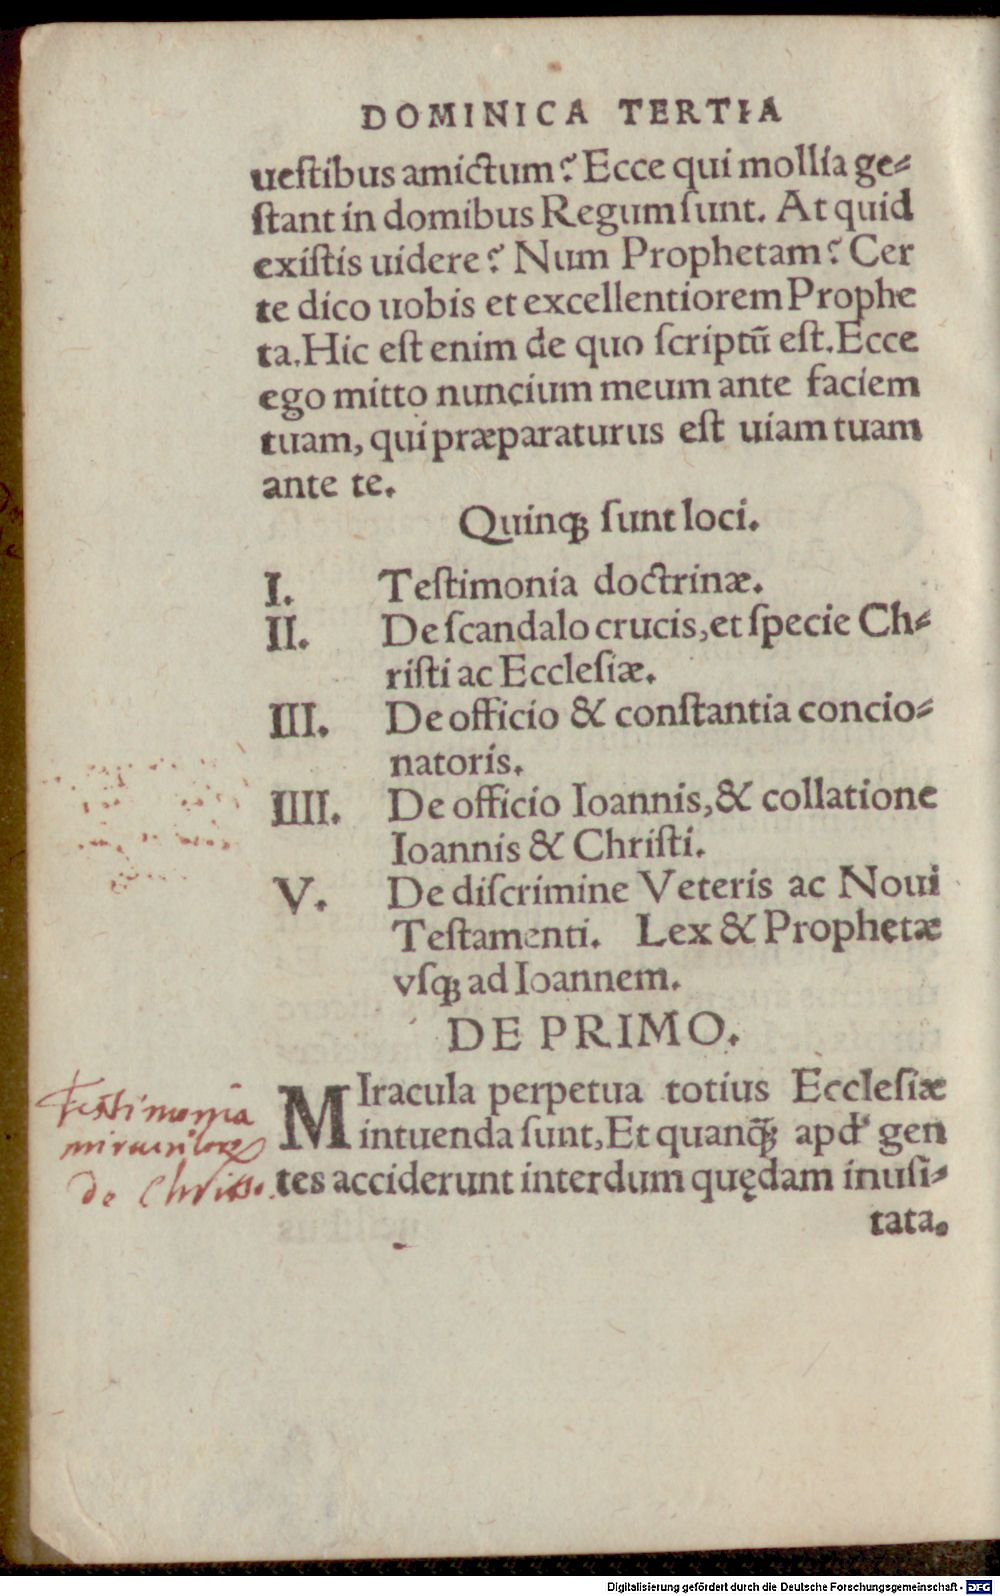 DOMINICA TERTIA
ueſtibus amictum? Ecce qui mollia ge⸗
ſtant in domibus Regum ſunt. At quid
exiſtis uidere? Num Prophetam? Cer
te dico uobis et excellentiorem Prophe
ta. Hic eſt enim de quo ſcriptū eſt. Ecce
ego mitto nuncium meum ante faciem
tuam, qui præparaturus eſt uiam tuam
ante te.
Quinqꝫ ſunt loci.
I. Teſtimonia doctrinæ.
II. De ſcandalo crucis, et ſpecie Ch⸗
riſti ac Eccleſiæ.
III. De officio & conſtantia concio⸗
natoris.
IIII. De officio Ioannis, & collatione
Ioannis & Chriſti.
V. De diſcrimine Veteris ac Noui
Teſtamenti. Lex & Prophetæ
vſqꝫ ad Ioannem.
DE PRIMO.
MIracula perpetua totius Eccleſiæ
intuenda ſunt, Et quanq̄ꝫ apd' gen
tes acciderunt interdum quędam inuſi⸗
tata.
Testimonia
miraculorꝝ
de Christo.
Digitalisierung gefördert durch die Deutsche Forschungsgemeinschaft - DFG